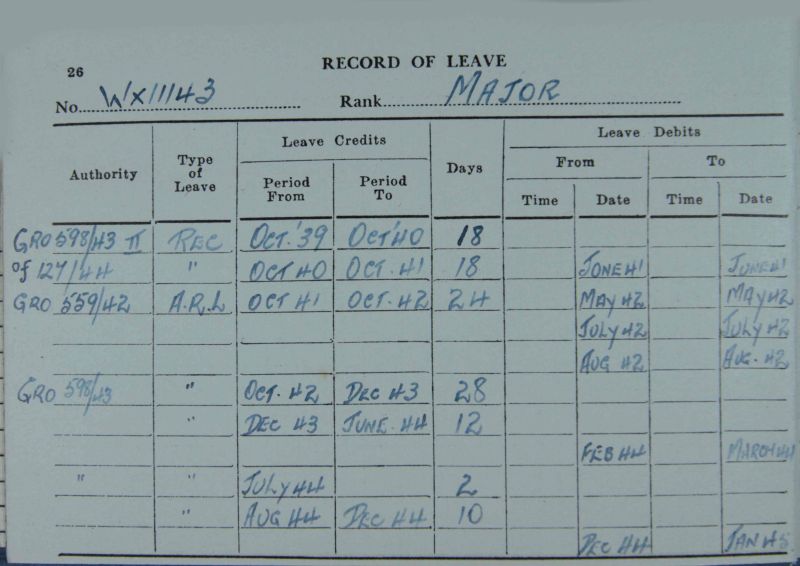 26
RECORD OF LEAVE
No. WX11143 Rank MAJOR
Authority Type of Leave Leave Credits Days Leave Debits
Period From Period To From To
Time Date Time Date
GRO 598/43 II REC OCT. '39 OCT '40 18
of 127/44 " OCT 40 OCT. 41 18 JUNE 41 JUNE 41
GRO 559/42 A.R.L OCT 41 OCT. 42 24 MAY 42 MAY 42
JULY 42 JULY 42
AUG 42 AUG. 42
GRO 598/43 " OCT. 42 DEC 43 28
" DEC 43 JUNE. 44 12
FEB 44 MARCH 44
" " JULY 44 2
" AUG 44 DEC 44 10
DEC 44 JAN 45